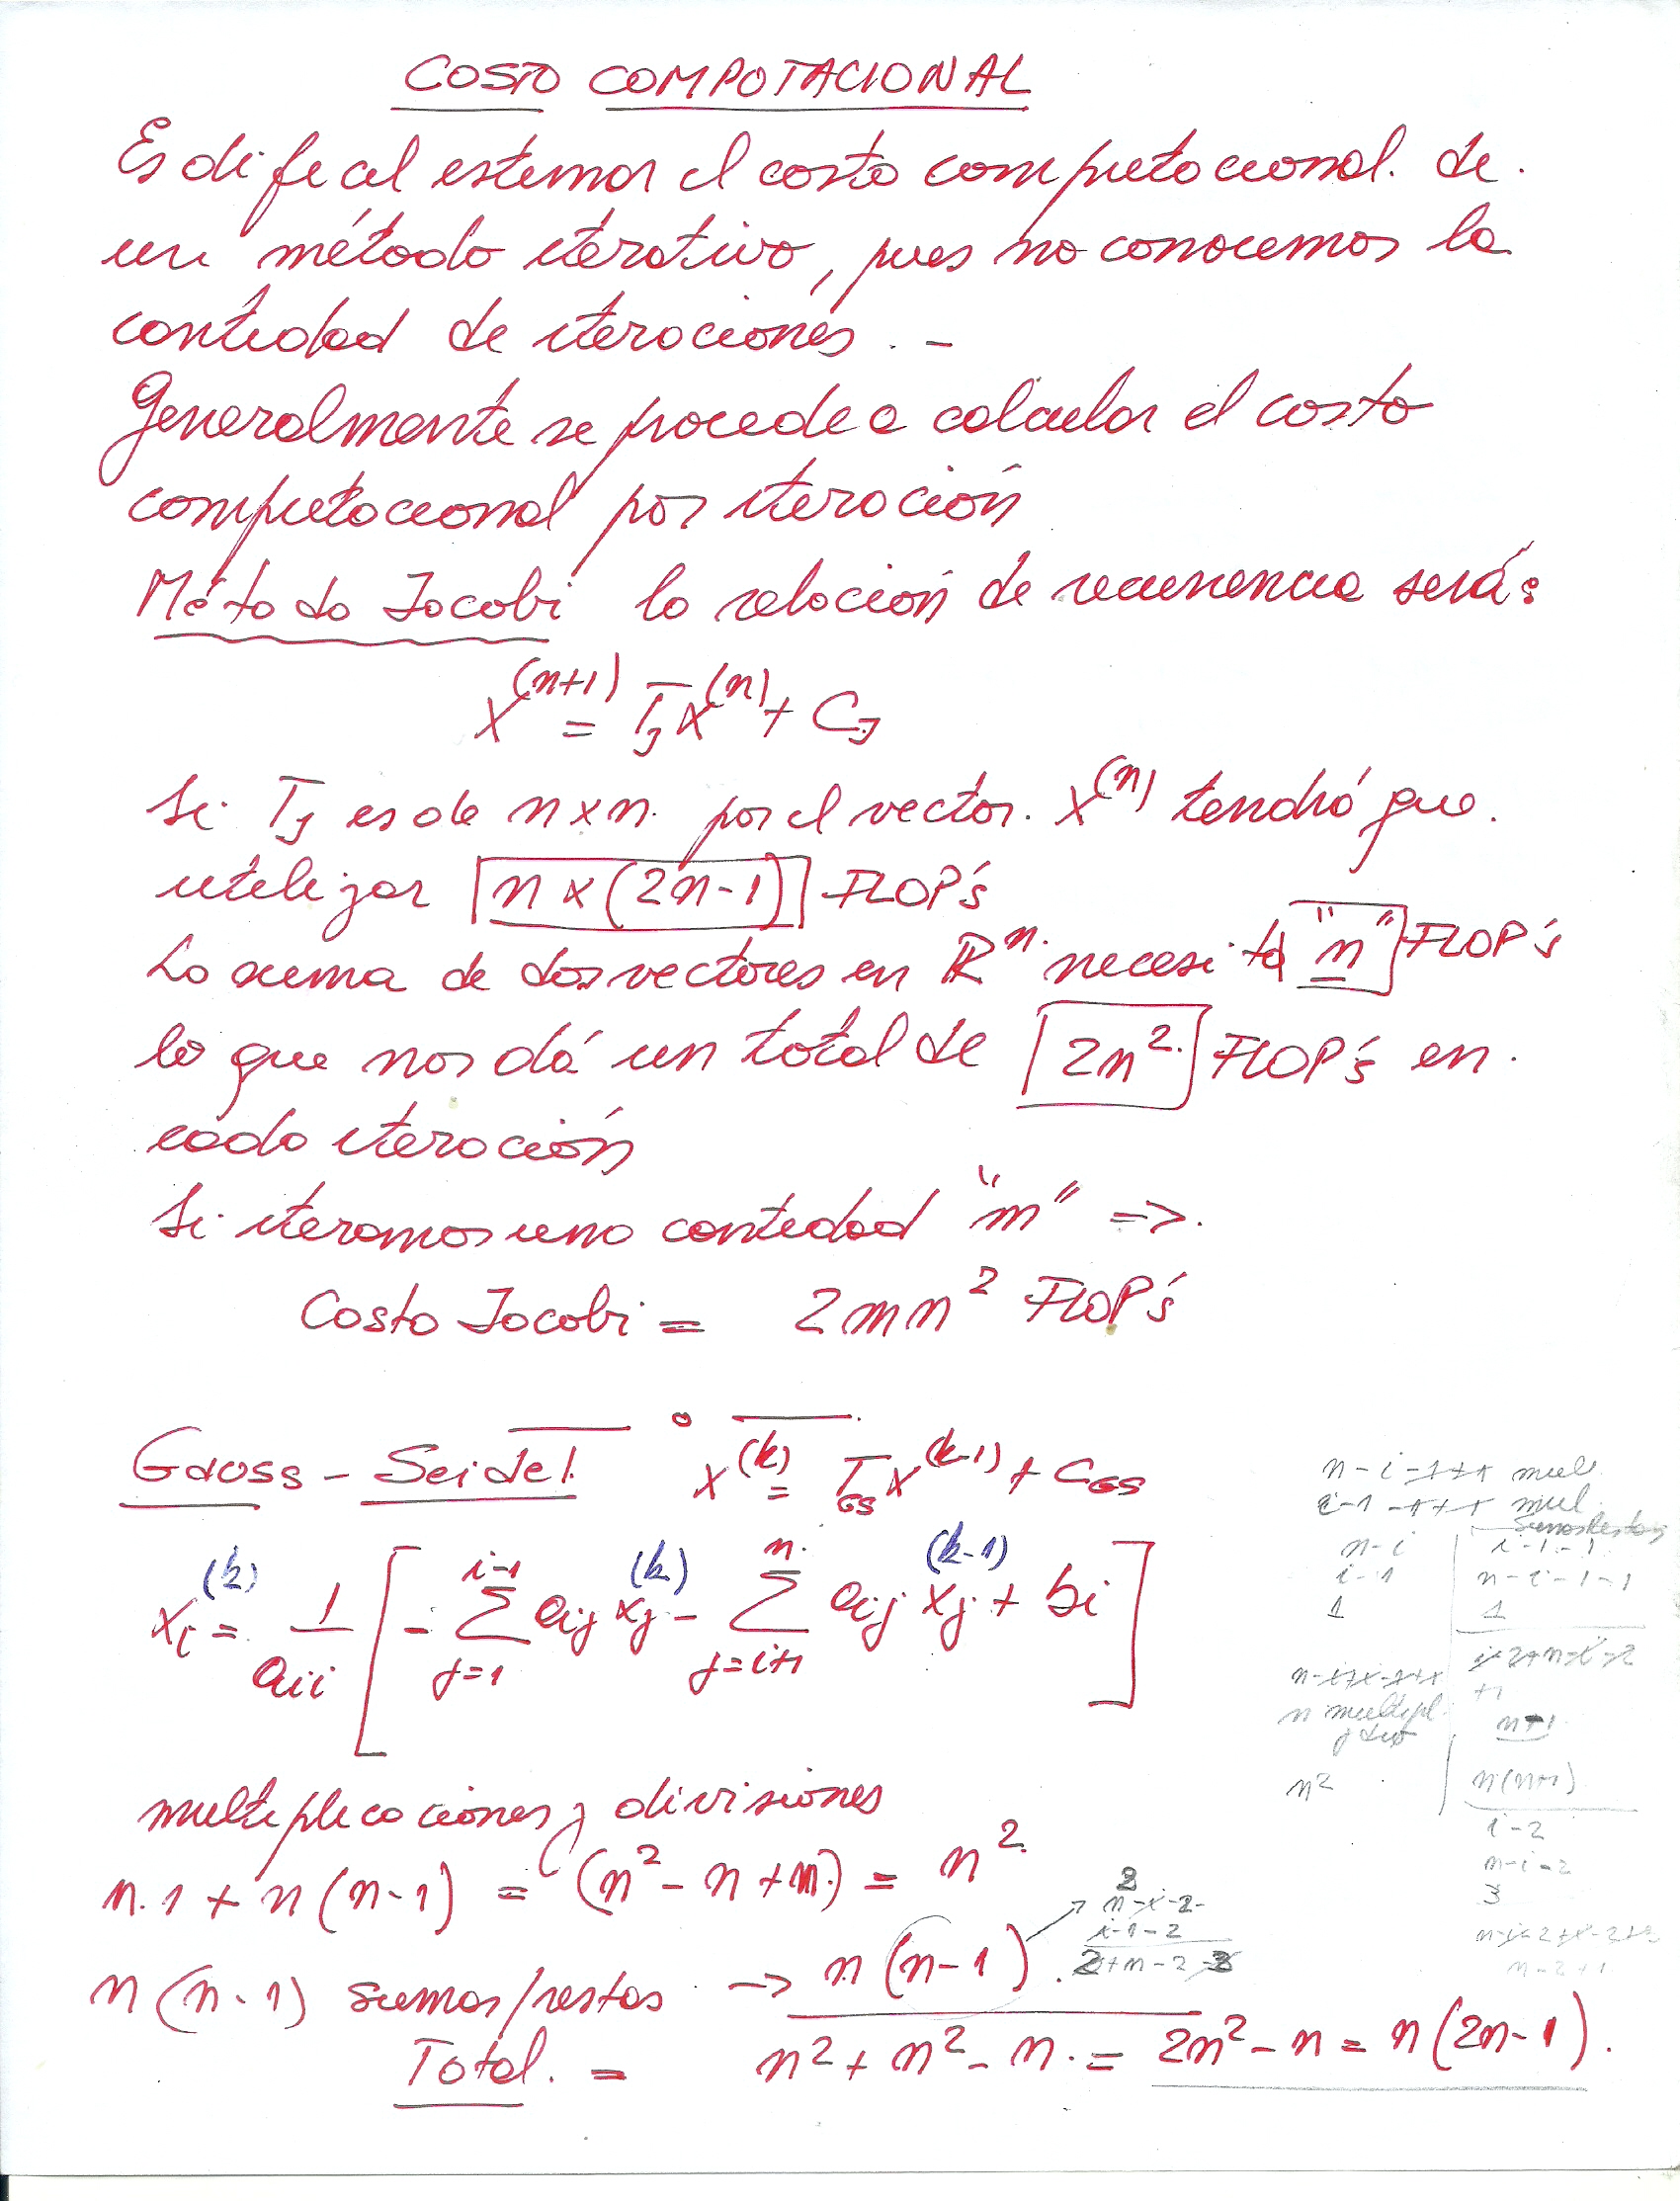 COSTO COMPUTACIONAL
Es dificil estimar el costo computacional de
un método iterativo, pues no conocemos la
cantidad de iteraciones.-
Generalmente se procede a calcular el costo
computacional por iteración
Método Jacobi la relación de recurrencia será:
X^(n+1) = T_J X^(n) + C_J
Si T_J es de n x n por el vector X^(n) tendrá que
utilizar n x (2n-1) FLOP's
La suma de dos vectores en R^n necesita "n" FLOP's
lo que nos dá un total de 2n² FLOP's en
cada iteración
Si iteramos una cantidad "m" =>
Costo Jacobi = 2mn² FLOP's
Gauss-Seidel. x^(k) = T_GS x^(k-1) + C_GS
x_i^(k) = 1/a_ii [ - Σ_{j=1}^{i-1} a_ij x_j^(k) - Σ_{j=i+1}^{n} a_ij x_j^(k-1) + b_i ]
n-i-1+1 mul.
i-1-1+1 mul.
sumas/restas
n-i i-1-1
i-1 n-i-1-1
1 1
i-2+n-i-2
+1
n multipl. n-1
n² n(n-1)
i-2
n-i-2
3
multiplicaciones y divisiones
n.1 + n(n-1) = (n²-n+n) = n²
n-i-2
i-1-2
n(n-1) sumas/restas -> n(n-1)
Total. = n²+n²-n = 2n²-n = n(2n-1).